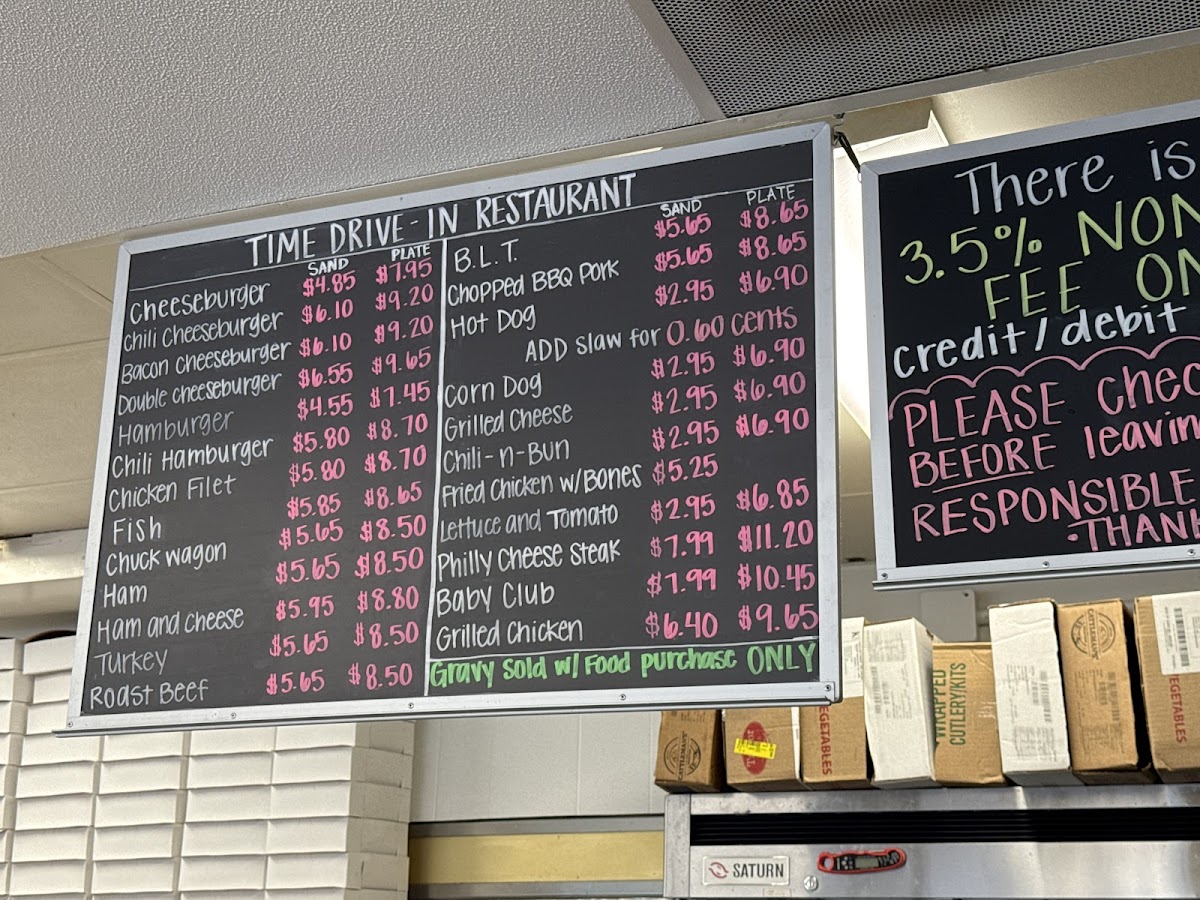 TIME DRIVE-IN RESTAURANT
SAND PLATE
Cheeseburger $4.85 $7.95
Chili Cheeseburger $6.10 $9.20
Bacon Cheeseburger $6.10 $9.20
Double cheeseburger $6.55 $9.65
Hamburger $4.55 $7.45
Chili Hamburger $5.80 $8.70
Chicken Filet $5.80 $8.70
Fish $5.85 $8.65
Chuck wagon $5.65 $8.50
Ham $5.65 $8.50
Ham and cheese $5.95 $8.80
Turkey $5.65 $8.50
Roast Beef $5.65 $8.50
SAND PLATE
B.L.T. $5.65 $8.65
Chopped BBQ Pork $5.65 $8.65
Hot Dog $2.95 $6.90
ADD slaw for 0.60 cents
Corn Dog $2.95 $6.90
Grilled Cheese $2.95 $6.90
Chili-n-Bun $2.95 $6.90
Fried Chicken w/Bones $5.25
Lettuce and Tomato $2.95 $6.85
Philly Cheese Steak $7.99 $11.20
Baby Club $7.99 $10.45
Grilled Chicken $6.40 $9.65
Gravy Sold w/ Food purchase ONLY
There is
3.5% NON
FEE ON
credit/debit
PLEASE Chec
BEFORE leavin
RESPONSIBLE
·THAN
CATTLEMAN'S
VEGETABLES
WRAPPED
CUTLERY/KITS
VEGETABLES
SATURN